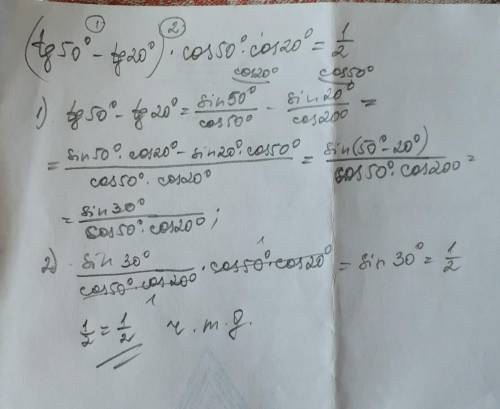 (tg50° - tg20°) · cos50° · cos20° = 1/2
① ②
cos20° cos50°
1) tg50° - tg20° = sin50°/cos50° - sin20°/cos20° =
= (sin50° · cos20° - sin20° · cos50°)/(cos50° · cos20°) = sin(50° - 20°)/(cos50° · cos20°) =
= sin30°/(cos50° · cos20°);
2) sin30°/(cos50° · cos20°) · cos50° · cos20° = sin30° = 1/2
1 1
1/2 = 1/2 ч.т.д.